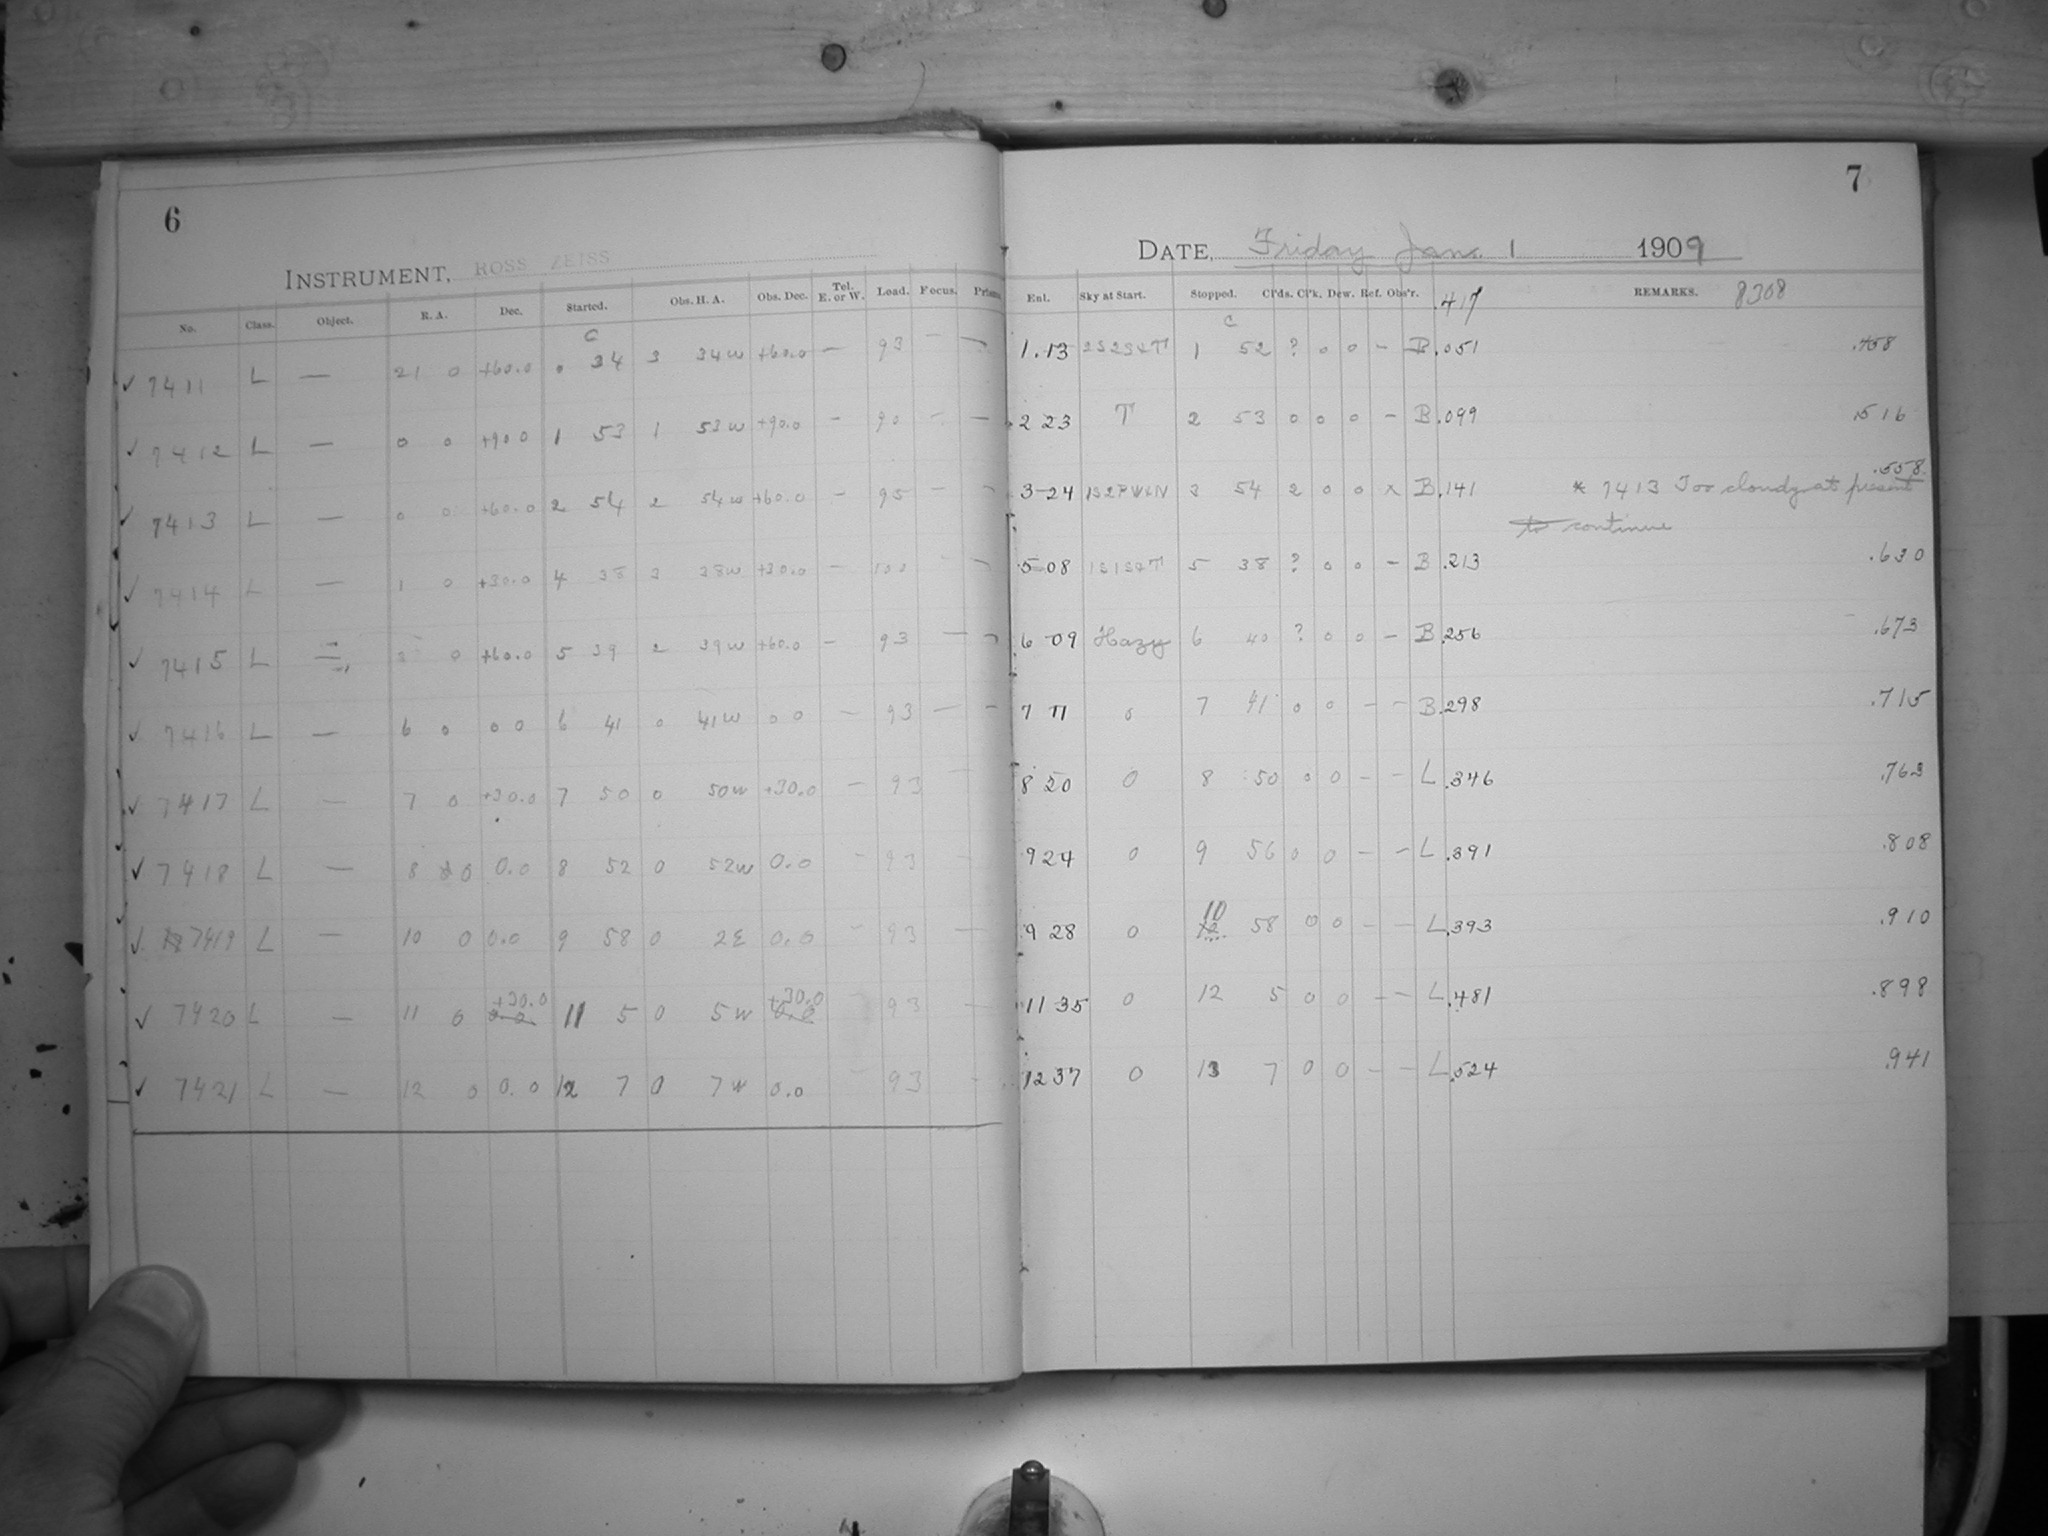 6
INSTRUMENT, ROSS ZEISS
No. Class. Object. R. A. Dec. Started. Obs. H. A. Obs. Dec. Tel. E. or W. Load. Focus. Prisms.
c
✓ 7411 L — 21 0 +60.0 0 34 3 34w +60.0 — 93 — —
✓ 7412 L — 0 0 +90 0 1 53 1 53w +90.0 - 90 - —
✓ 7413 L — 0 0 +60.0 2 54 2 54w +60.0 - 95 - -
✓ 7414 L — 1 0 +30.0 4 38 3 38w +30.0 -
✓ 7415 L — 0 +60.0 5 39 2 39w +60.0 - 93 — -
✓ 7416 L — 6 0 0 0 6 41 0 41w 0 0 — 93 — -
✓ 7417 L — 7 0 +30.0 7 50 0 50w +30.0 — 93 —
✓ 7418 L — 8 0 0.0 8 52 0 52w 0.0 - 93 —
✓ 7419 L — 10 0 0.0 9 58 0 2E 0.0 - 93 —
✓ 7420 L — 11 0 +30.0 11 5 0 5w +30.0 93 —
✓ 7421 L — 12 0 0.0 12 7 0 7w 0.0 93 -
7
DATE, Friday Jan. 1 1909
Enl. Sky at Start. Stopped. Cl'ds. Cl'k. Dew. Ref. Obs'r. .417 REMARKS. 8308
c
1.13 2S2S&T 1 52 ? 0 0 - B .051 .458
2 23 T 2 53 0 0 0 - B .099 .516
.558
3-24 1S2PW&N 3 54 2 0 0 x B .141 * 7413 Too cloudy at present
to continue
5-08 1S1S&T 5 38 ? 0 0 - B .213 .630
6 09 Hazy 6 40 ? 0 0 - B .256 .673
7 11 0 7 41 0 0 - - B .298 .715
8 20 0 8 50 0 0 - - L .346 .763
9 24 0 9 56 0 0 - - L .391 .808
9 28 0 10 58 0 0 - - L .393 .910
11 35 0 12 5 0 0 - - L .481 .898
12 37 0 13 7 0 0 - - L .524 .941